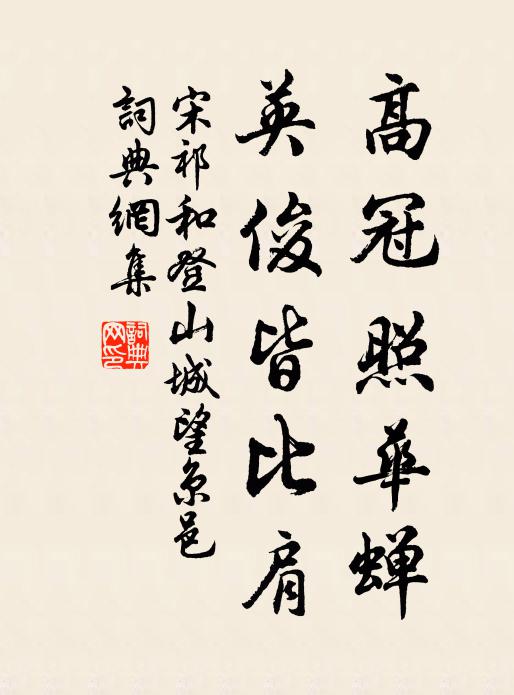 高冠照華蟬
英俊皆比肩
宋祁和登山城望京邑
詞典網集
詞典網印